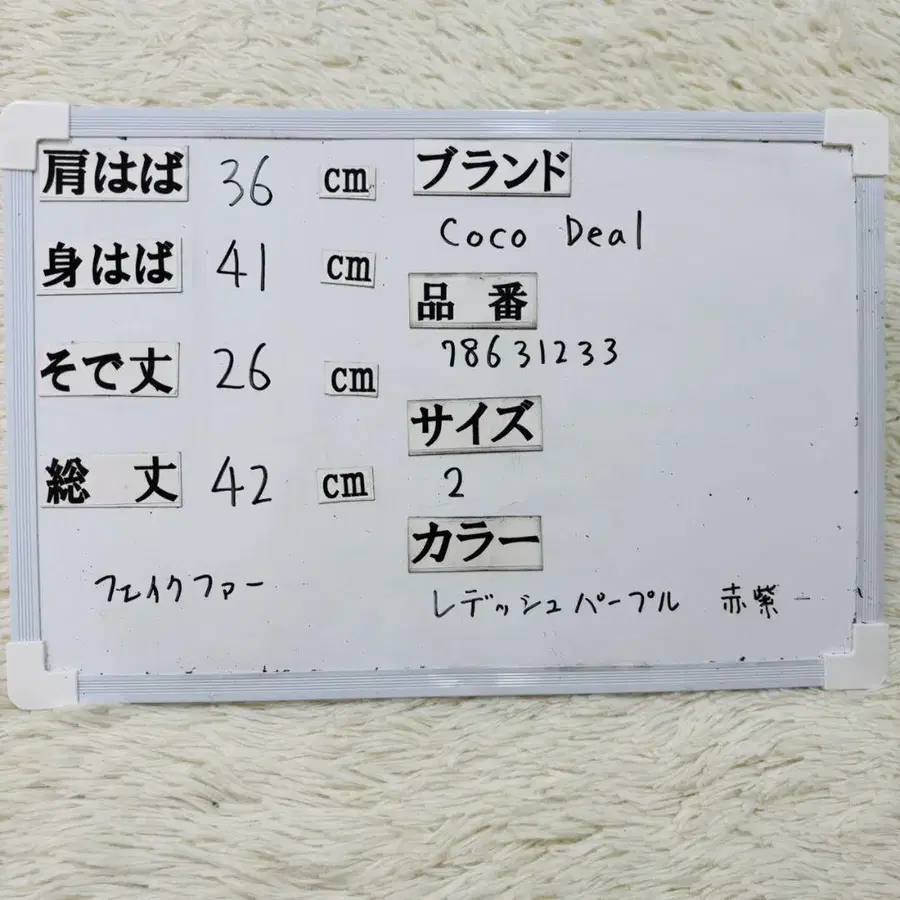 肩はば 36 cm
身はば 41 cm
そで丈 26 cm
総 丈 42 cm
フェイクファー
ブランド
Coco Deal
品 番
78631233
サイズ
2
カラー
レデッシュパープル 赤紫